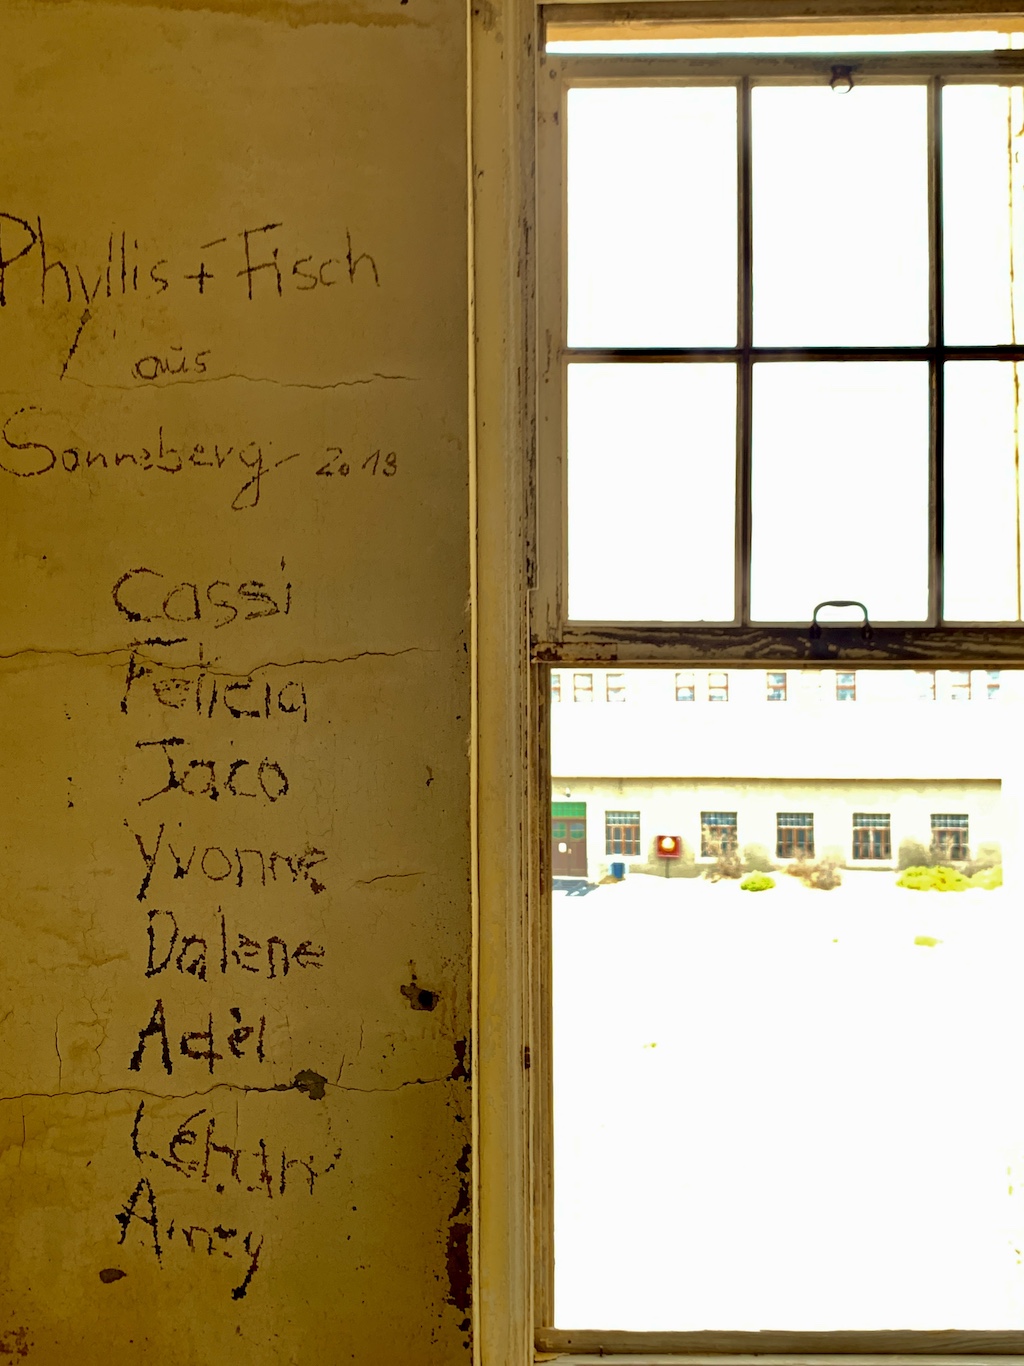 Phyllis + Fisch
aus
Sonneberg 2018
Cassi
Felicia
Jaco
Yvonne
Dalene
Adèl